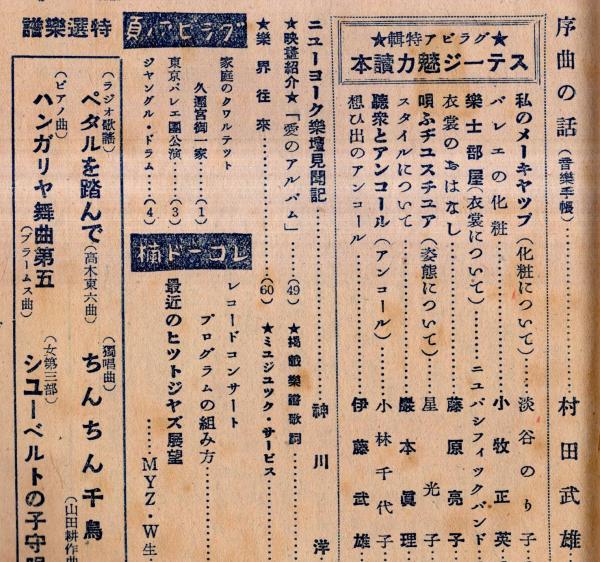 序曲の話(音樂手帳)…………村田武雄
★グラビア特輯★
ステージ魅力讀本
私のメーキャップ(化粧について)…淡谷のり子
バレエの化粧…………小牧正英
樂士部屋(衣裳について)…ニュパシフィックバンド
衣裳のおはなし…………藤原亮子
唄ふヂユスチユア(姿態について)…星光子
スタイルについて…………巖本眞理
聽衆とアンコール(アンコール)…小林千代子
想ひ出のアンコール…………伊藤武雄
ニューヨーク樂壇見聞記…………神川洋
★映畫紹介★「愛のアルバム」……(49)
★掲載樂譜歌詞…
★樂界往來……(60)
★ミユジユック・サービス…
グラビア頁
家庭のクワルテット
久邇宮御一家……(1)
東京バレエ團公演……(3)
ジャングル・ドラム……(4)
レコード欄
レコードコンサート
プログラムの組み方……
最近のヒットジャズ展望
……MYZ・W生
特選樂譜
(ラジオ歌謠)
ペタルを踏んで(高木東六曲)
(獨唱曲)
ちんちん千鳥(山田耕作曲
(ピアノ曲)
ハンガリヤ舞曲第五(ブラームス曲)
(女第三部)
シユーベルトの子守